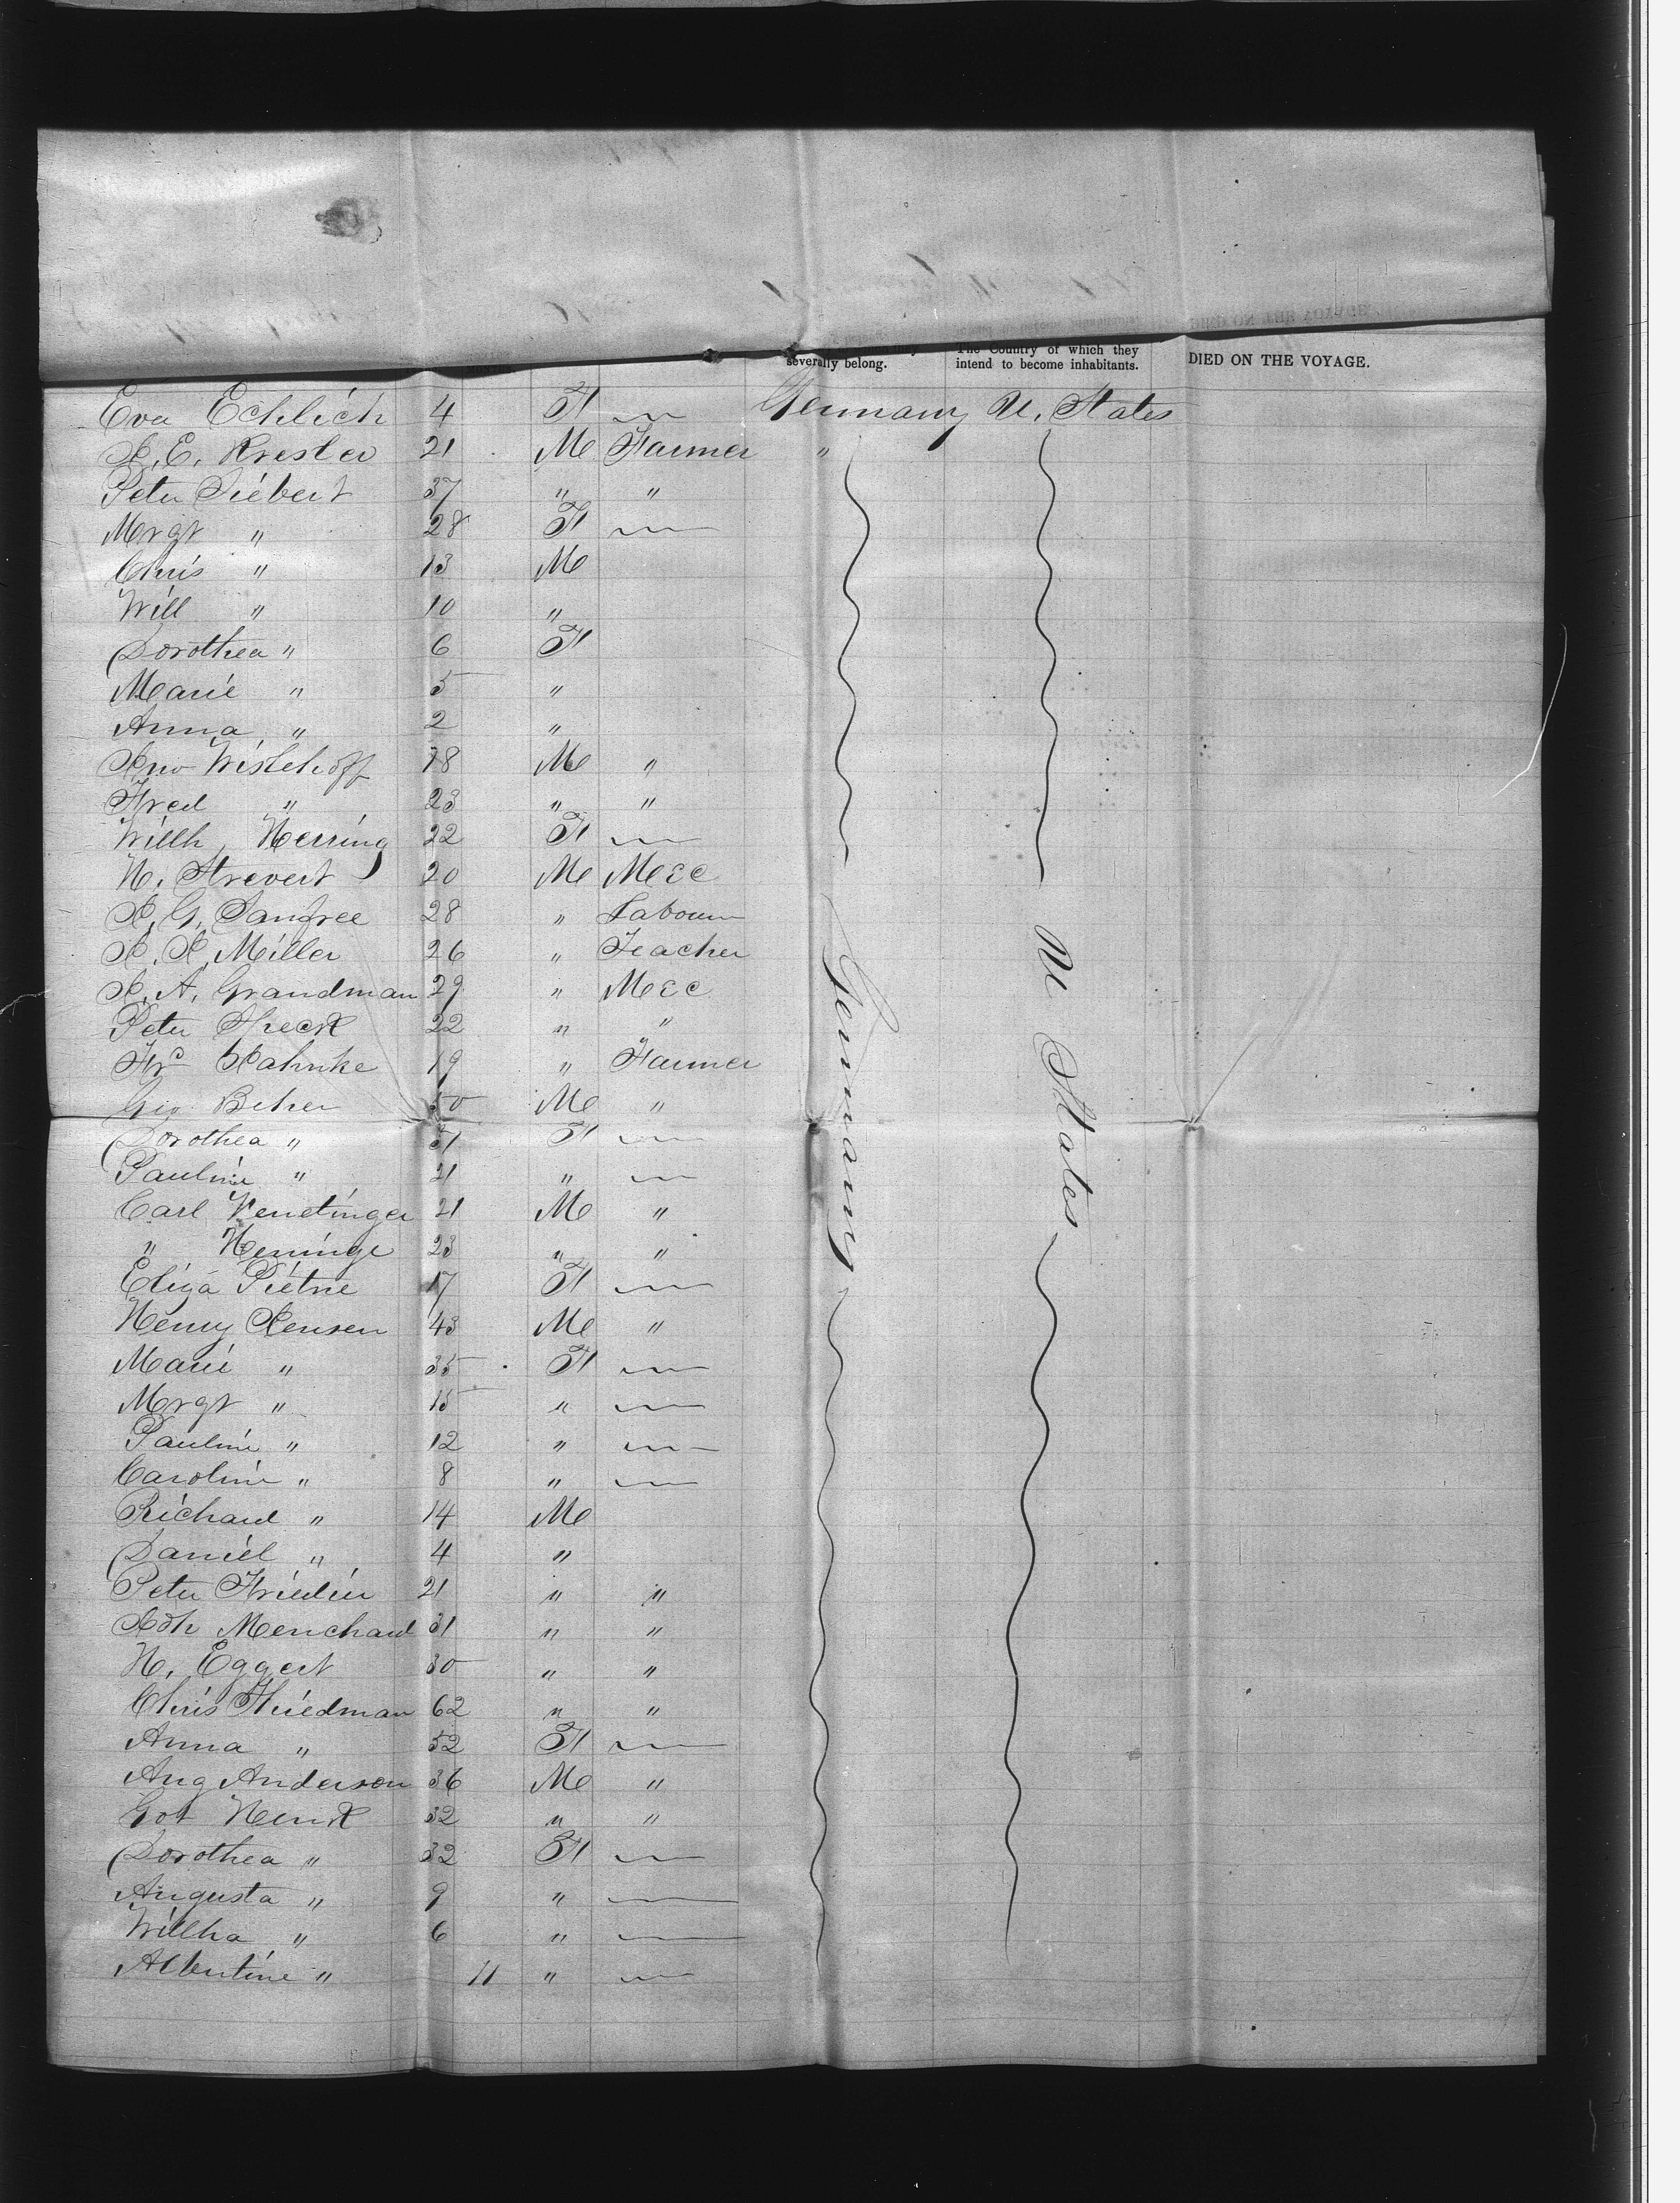 severally belong. The Country of which they intend to become inhabitants. DIED ON THE VOYAGE.
Eva Echlich 4 F — Germany U. States
J. E. Krester 21 M Farmer "
Peter Siebert 37 " "
Mrgt " 28 F —
Chris " 13 M
Will " 10 "
Dorothea " 6 F
Marie " 5 "
Anna " 2 "
Jno Wistehoff 18 M "
Fred " 23 " "
Willh Herring 22 F —
H. Strevert 20 M Mec
J. G. Sanfree 28 " Labour
J. J. Miller 26 " Teacher
J. A. Grandman 29 " Mec
Peter Speck 22 " "
Frc Jahnke 19 " Farmer
Geo Beher 50 M "
Dorothea " 51 F —
Pauline " 21 " —
Carl Venetinger 21 M "
" Heninge 23 " "
Eliza Pietne 17 F —
Henry Jensen 43 M "
Marie " 35 F —
Mrgt " 15 " —
Pauline " 12 " —
Caroline " 8 " —
Richard " 14 M
Daniel " 4 "
Peter Friedin 21 " "
Joh Menchard 31 " "
H. Eggert 30 " "
Chris Friedman 62 " "
Anna " 52 F —
Aug Anderson 36 M "
Got Henk 32 " "
Dorothea " 32 F —
Augusta " 9 " —
Willha " 6 " —
Albertine " 11 " —
Germany
U States